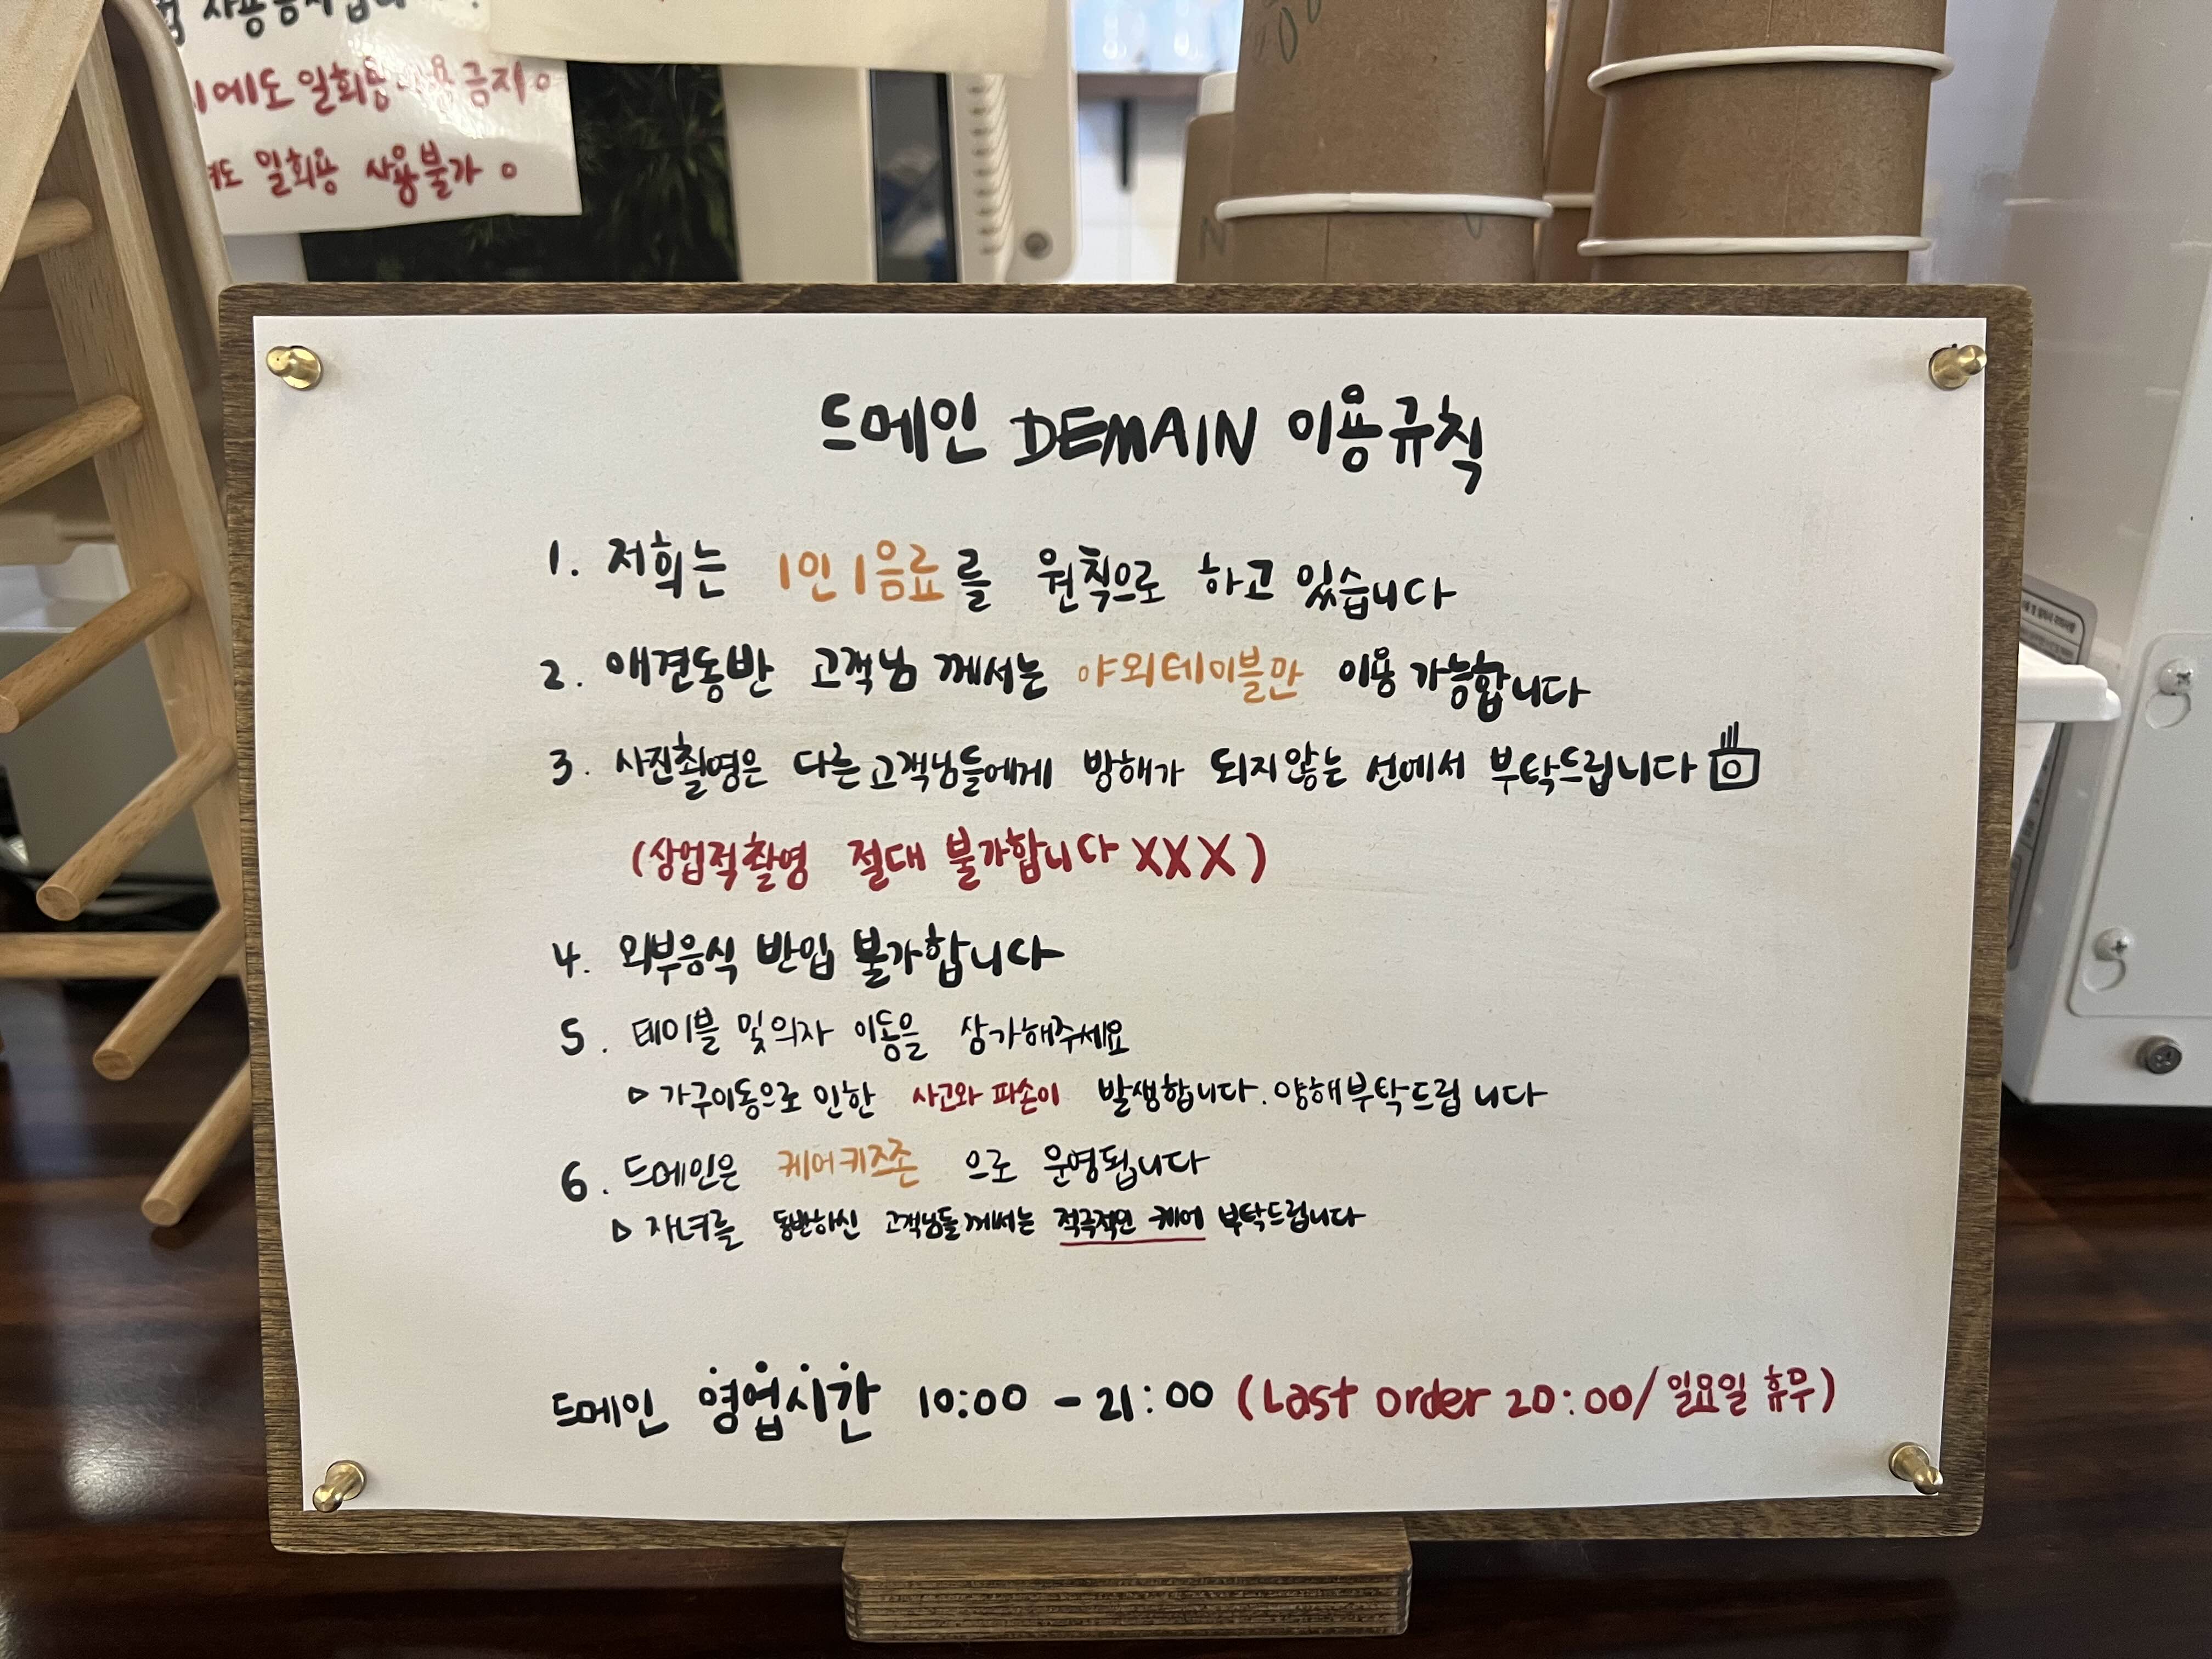 사용금지입니
에도 일회용 사용 금지
도 일회용 사용불가
드메인 DEMAIN 이용규칙
1. 저희는 1인 1음료를 원칙으로 하고 있습니다
2. 애견동반 고객님 께서는 야외테이블만 이용 가능합니다
3. 사진촬영은 다른고객님들에게 방해가 되지않는 선에서 부탁드립니다
(상업적촬영 절대 불가합니다 XXX)
4. 외부음식 반입 불가합니다
5. 테이블 및 의자 이동을 삼가해주세요
▷ 가구이동으로 인한 사고와 파손이 발생합니다. 양해부탁드립니다
6. 드메인은 케어키즈존 으로 운영됩니다
▷ 자녀를 동반하신 고객님들께서는 적극적인 케어 부탁드립니다
드메인 영업시간 10:00 - 21:00 (Last order 20:00/일요일 휴무)